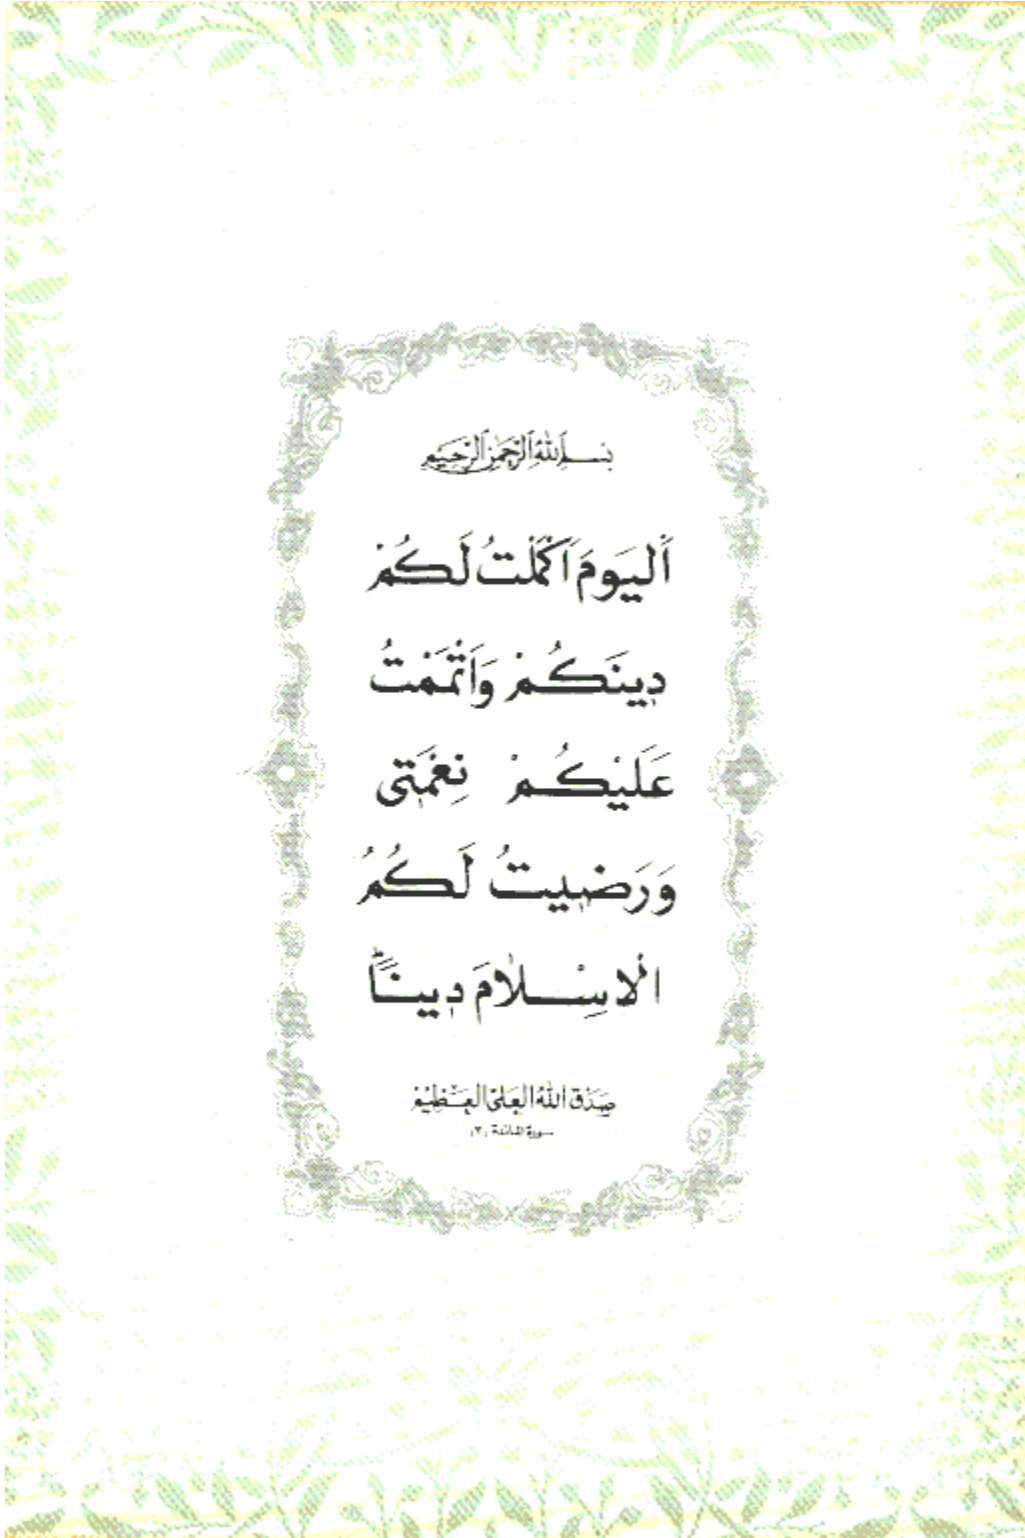 بسم الله الرحمن الرحيم
اَليَومَ اَكْمَلْتُ لَكُمْ
دِينَكُمْ وَاَتْمَمْتُ
عَلَيْكُمْ نِعْمَتِى
وَرَضِيتُ لَكُمُ
الْاِسْلَامَ دِينًا ؕ
صَدَقَ اللهُ العَلىُّ العَظِيْمُ
سورة المائدة (٣)